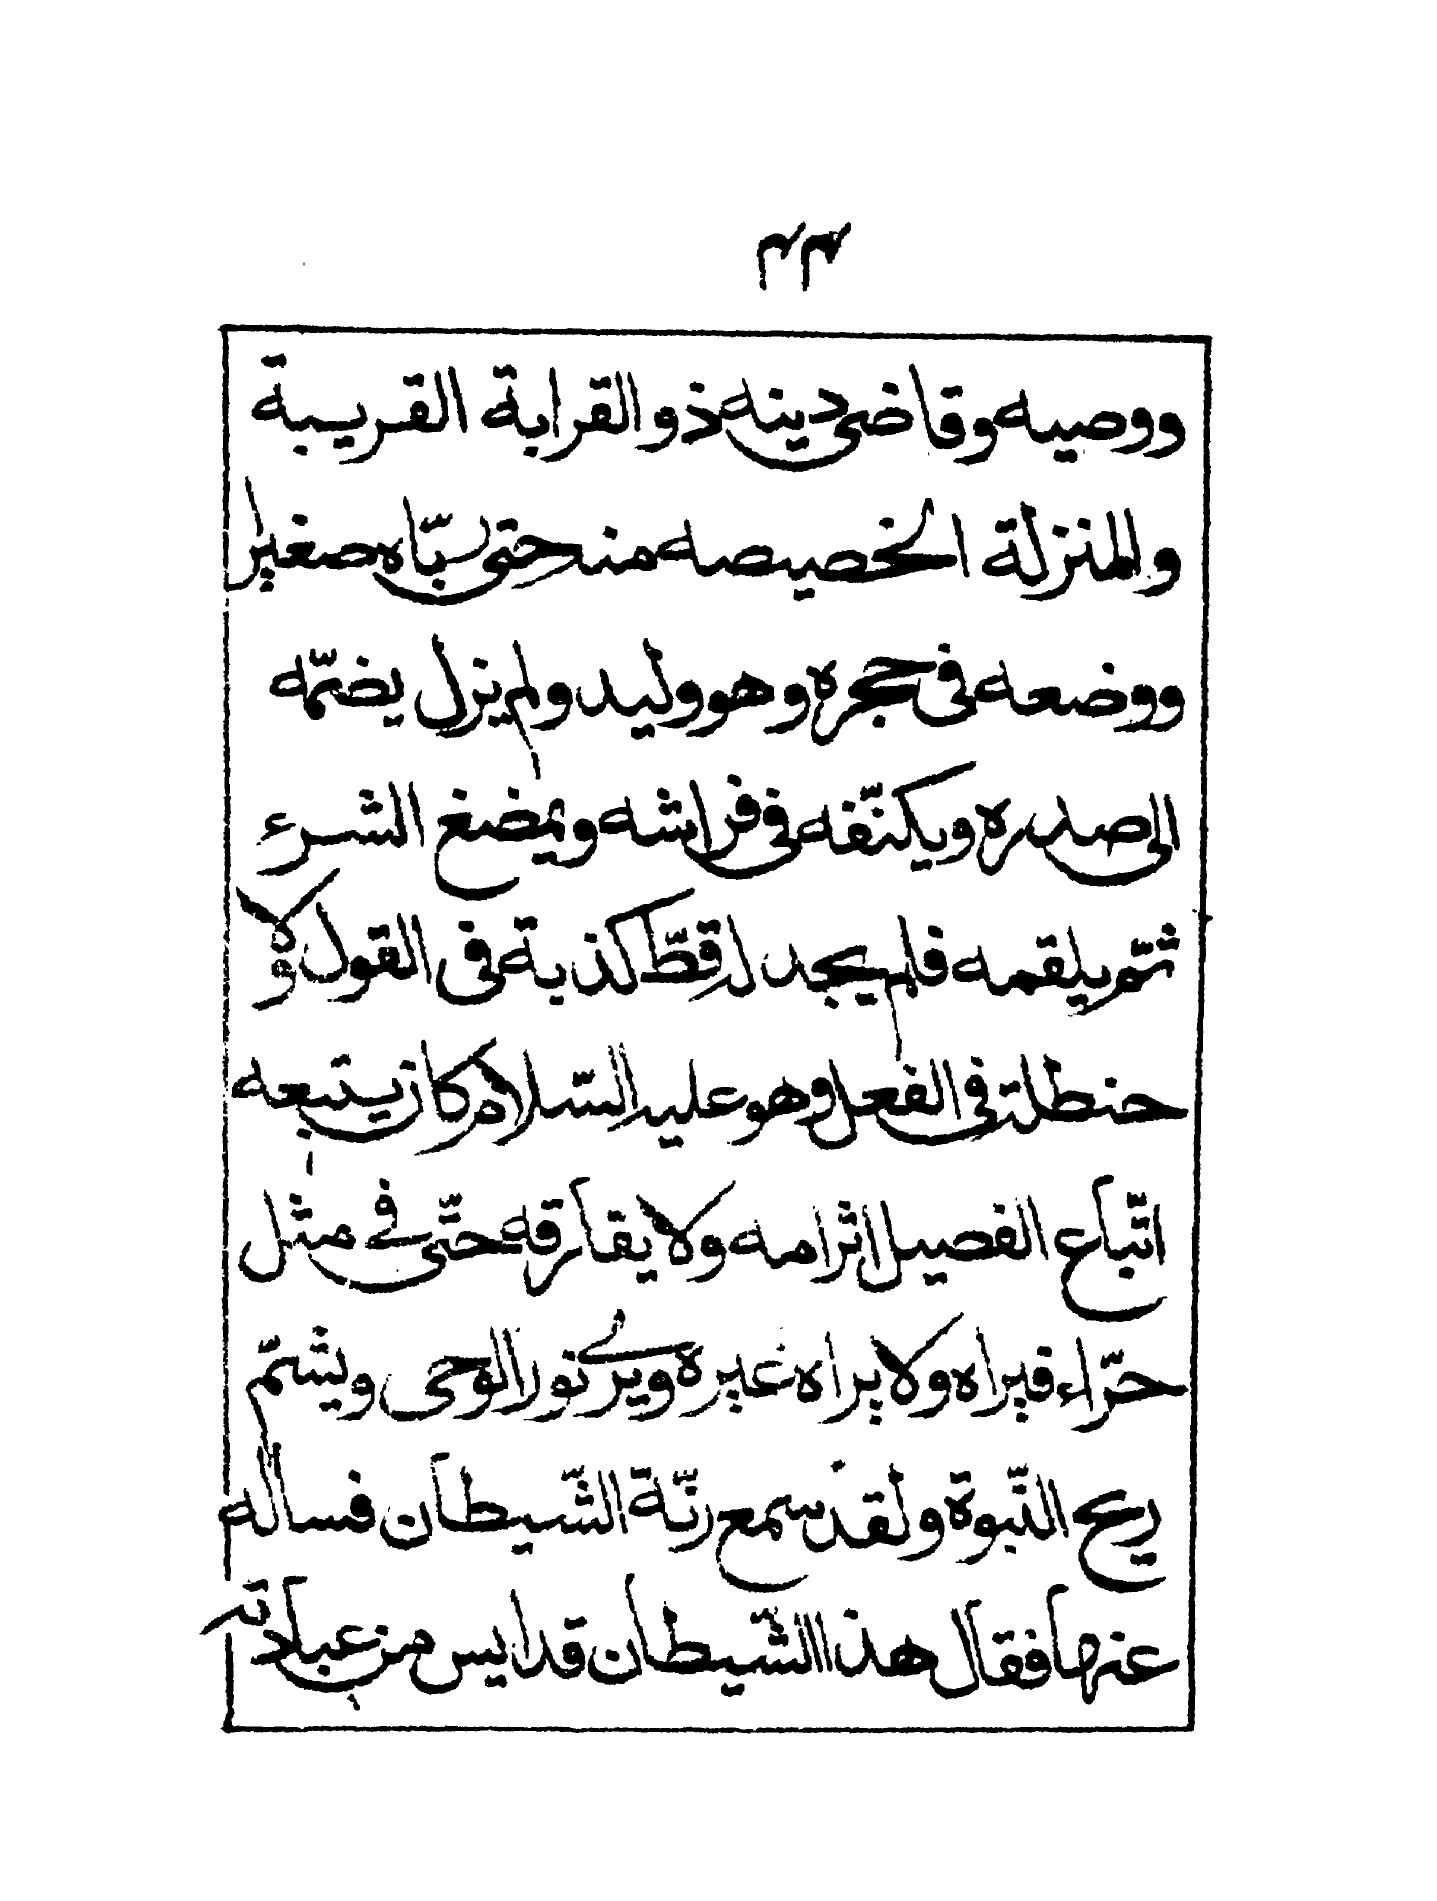 ٣٣
ووصيه وقاضى دينه ذو القرابة القريبة
والمنزلة الخصيصه منه حتى ربّاه صغيرا
ووضعه فى حجره وهو وليد ولم يزل يضمّه
الى صدره ويكنّفه فى فراشه ويمضغ الشىء
ثمّ يلقمه فلم يجد له قطّ كذبة فى القول ولا
حنطلة فى الفعل وهو عليه السّلام كان يتبعه
اتّباع الفصيل اثر امه ولا يفارقه حتّى فى مثل
حرّاء فيراه ولا يراه غيره ويرى نور الوحى ويشتمّ
ريح النّبوة ولقد سمع رنّة الشّيطان فساله
عنها فقال هذا الشّيطان قد ايس من عبادته